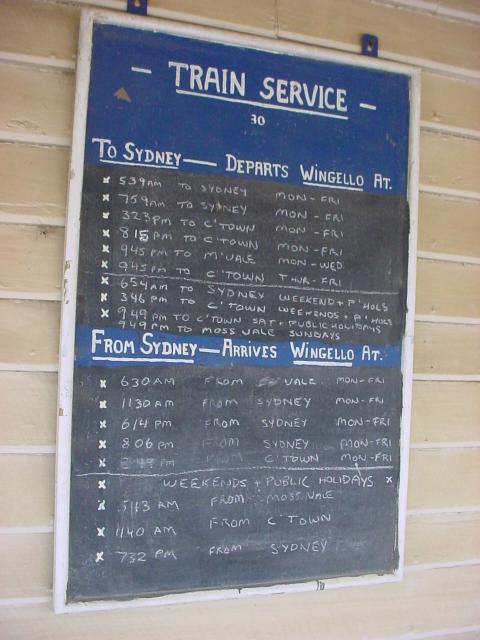 — TRAIN SERVICE —
30
TO SYDNEY — DEPARTS WINGELLO AT.
x 539AM TO SYDNEY MON-FRI
x 759AM TO SYDNEY MON-FRI
x 323PM TO C'TOWN MON-FRI
x 815PM TO C'TOWN MON-FRI
x 945PM TO M'VALE MON-WED
x 945PM TO C'TOWN THUR-FRI
x 654AM TO SYDNEY WEEKEND + P'HOLS
x 346PM TO C'TOWN WEEKENDS + P'HOLS
x 949PM TO C'TOWN SAT + PUBLIC HOLIDAYS
949PM TO MOSS VALE SUNDAYS
FROM SYDNEY — ARRIVES WINGELLO AT.
x 630AM FROM VALE MON-FRI
x 1130AM FROM SYDNEY MON-FRI
x 614PM FROM SYDNEY MON-FRI
x 806PM FROM SYDNEY MON-FRI
x PM FROM C'TOWN MON-FRI
x WEEKENDS + PUBLIC HOLIDAYS x
x 513 AM FROM MOSS VALE
x 1140 AM FROM C'TOWN
x 732 PM FROM SYDNEY